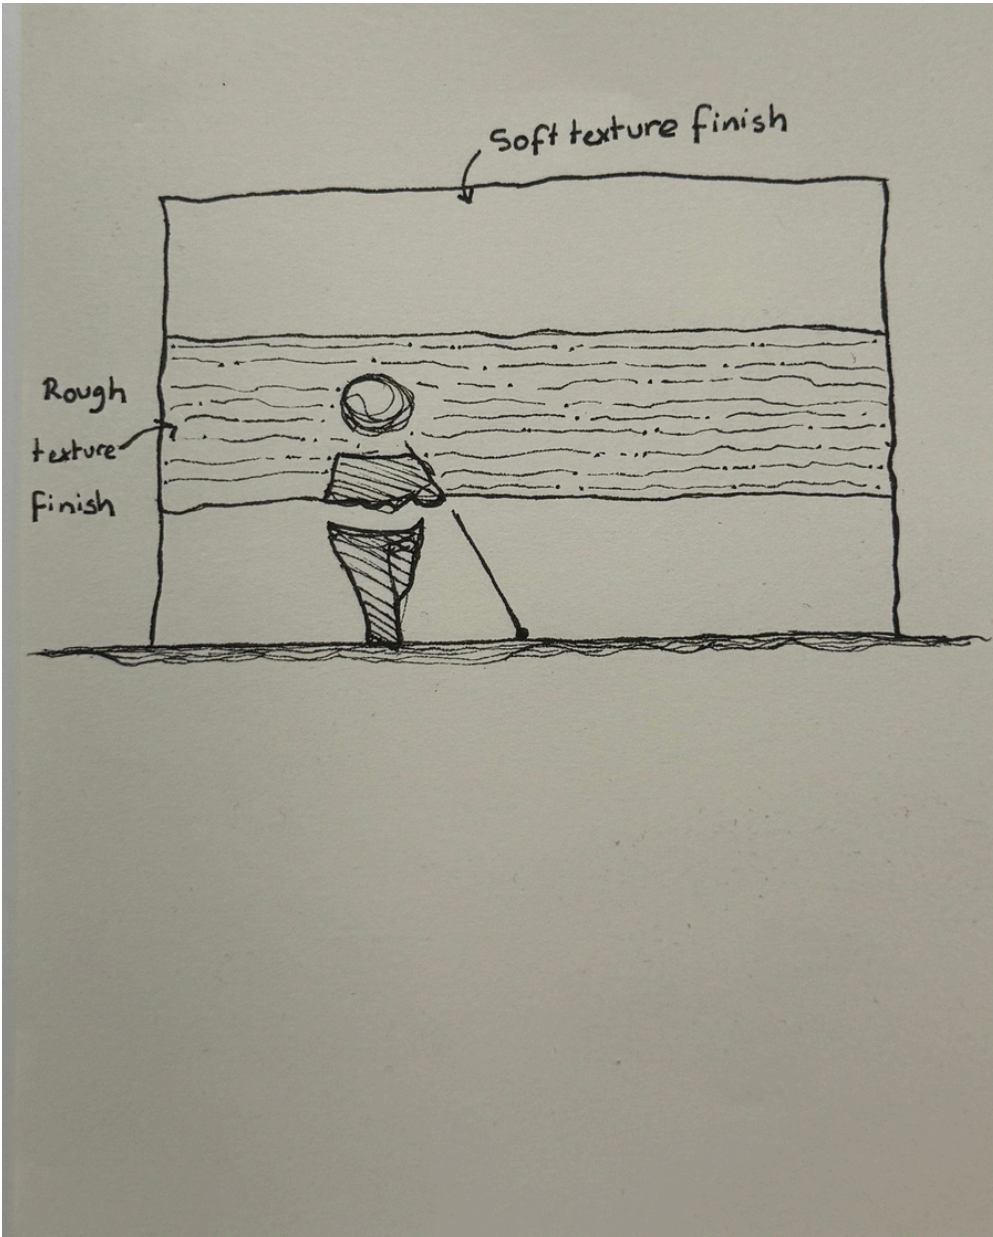 Soft texture finish
Rough
texture
finish